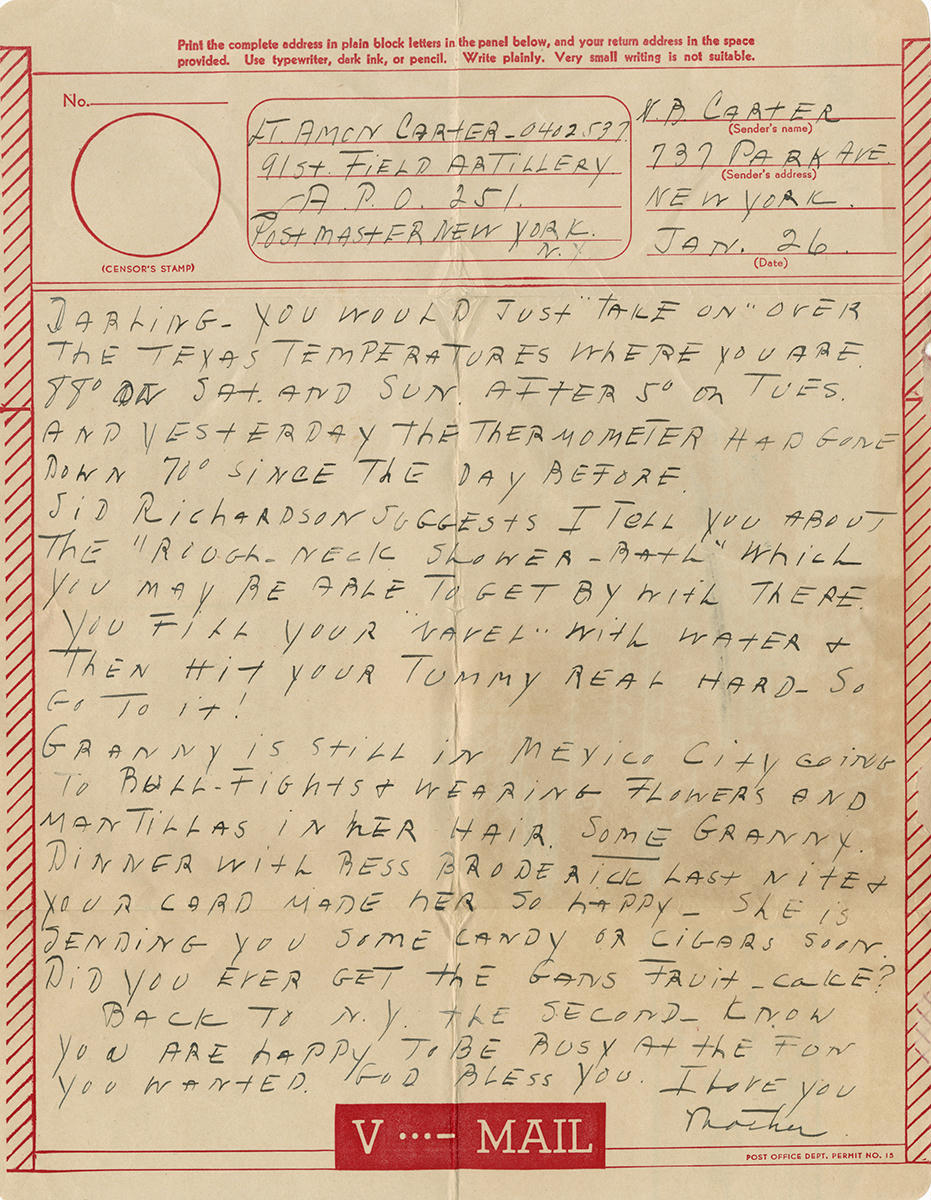 Print the complete address in plain block letters in the panel below, and your return address in the space
provided. Use typewriter, dark ink, or pencil. Write plainly. Very small writing is not suitable.
No.
(CENSOR'S STAMP)
LT. AMON CARTER - 0402537
91ST. FIELD ARTILLERY
A. P. O. 251.
POSTMASTER NEW YORK.
N.Y.
N. B CARTER
(Sender's name)
737 PARK AVE.
(Sender's address)
NEW YORK.
JAN. 26.
(Date)
DARLING - YOU WOULD JUST "TAKE ON" OVER
THE TEXAS TEMPERATURES WHERE YOU ARE.
88° ON SAT. AND SUN. AFTER 5° on TUES.
AND YESTERDAY THE THERMOMETER HAD GONE
DOWN 70° SINCE THE DAY BEFORE.
SID RICHARDSON SUGGESTS I TELL YOU ABOUT
THE "ROUGH-NECK SHOWER-BATH" WHICH
YOU MAY BE ABLE TO GET BY WITH THERE.
YOU FILL YOUR "NAVEL" WITH WATER &
THEN HIT YOUR TUMMY REAL HARD - SO
GO TO IT!
GRANNY IS STILL IN MEXICO CITY GOING
TO BULL-FIGHTS & WEARING FLOWERS AND
MANTILLAS IN HER HAIR. SOME GRANNY.
DINNER WITH BESS BRODERICK LAST NITE &
YOUR CARD MADE HER SO HAPPY - SHE IS
SENDING YOU SOME CANDY OR CIGARS SOON.
DID YOU EVER GET THE GANS FRUIT-CAKE?
BACK TO N.Y. THE SECOND - KNOW
YOU ARE HAPPY TO BE BUSY AT THE FUN
YOU WANTED. GOD BLESS YOU. I LOVE YOU
Mother.
V ···- MAIL
POST OFFICE DEPT. PERMIT NO. 15